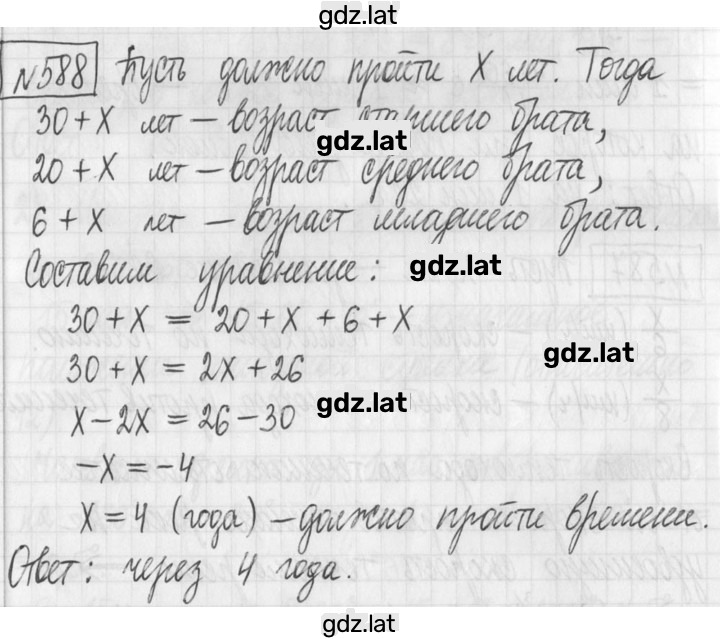 gdz.lat
№588 Пусть должно пройти X лет. Тогда
30+X лет – возраст старшего брата,
gdz.lat
20+X лет – возраст среднего брата,
6+X лет – возраст младшего брата.
Составим уравнение: gdz.lat
30+X = 20+X+6+X
gdz.lat
30+X = 2X+26
gdz.lat
X–2X = 26–30
–X = –4
X = 4 (года) – должно пройти времени.
Ответ: через 4 года.
gdz.lat